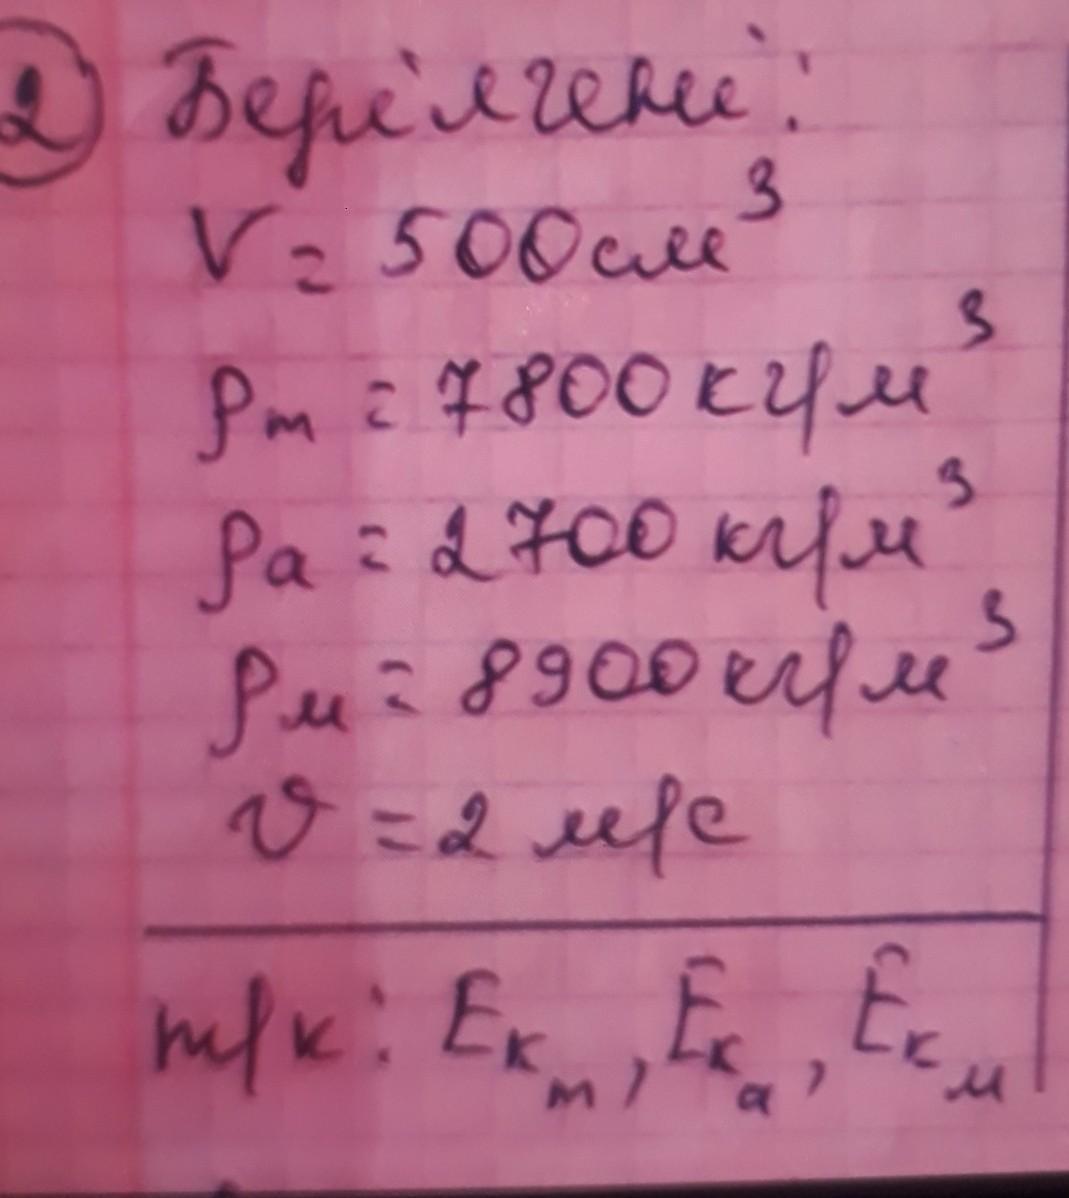 2 Берілгені:
V = 500см³
ρт = 7800кг/м³
ρа = 2700 кг/м³
ρм = 8900кг/м³
υ = 2 м/с
т/к: Eкт, Eка, Eкм